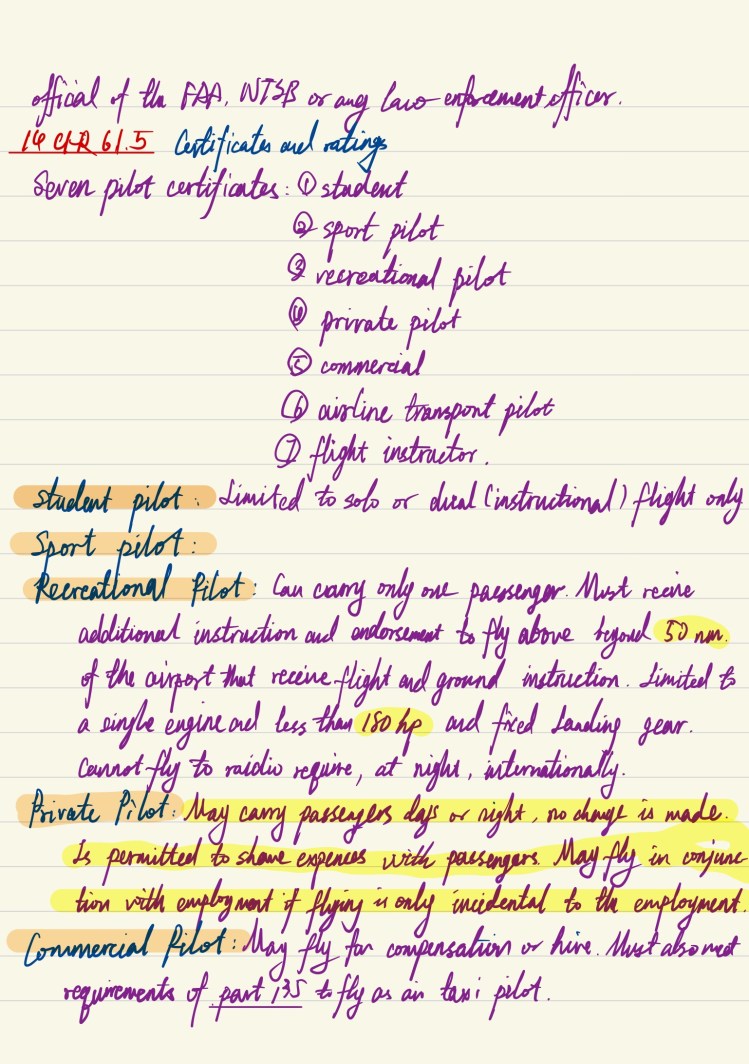 official of the FAA, NTSB or any law enforcement officer.
14 CFR 61.5 Certificates and ratings
Seven pilot certificates: ① student
② sport pilot
③ recreational pilot
④ private pilot
⑤ commercial
⑥ airline transport pilot
⑦ flight instructor.
Student pilot: Limited to solo or dual (instructional) flight only
Sport pilot:
Recreational Pilot: Can carry only one passenger. Must receive
additional instruction and endorsement to fly above beyond 50 nm.
of the airport that receive flight and ground instruction. Limited to
a single engine and less than 180 hp and fixed landing gear.
Cannot fly to raidio require, at night, internationally.
Private Pilot: May carry passengers days or night, no charge is made.
Is permitted to share expences with passengers. May fly in conjunc
tion with employment if flying is only incidental to the employment.
Commercial Pilot: May fly for compensation or hire. Must also meet
requirements of part 135 to fly as air taxi pilot.